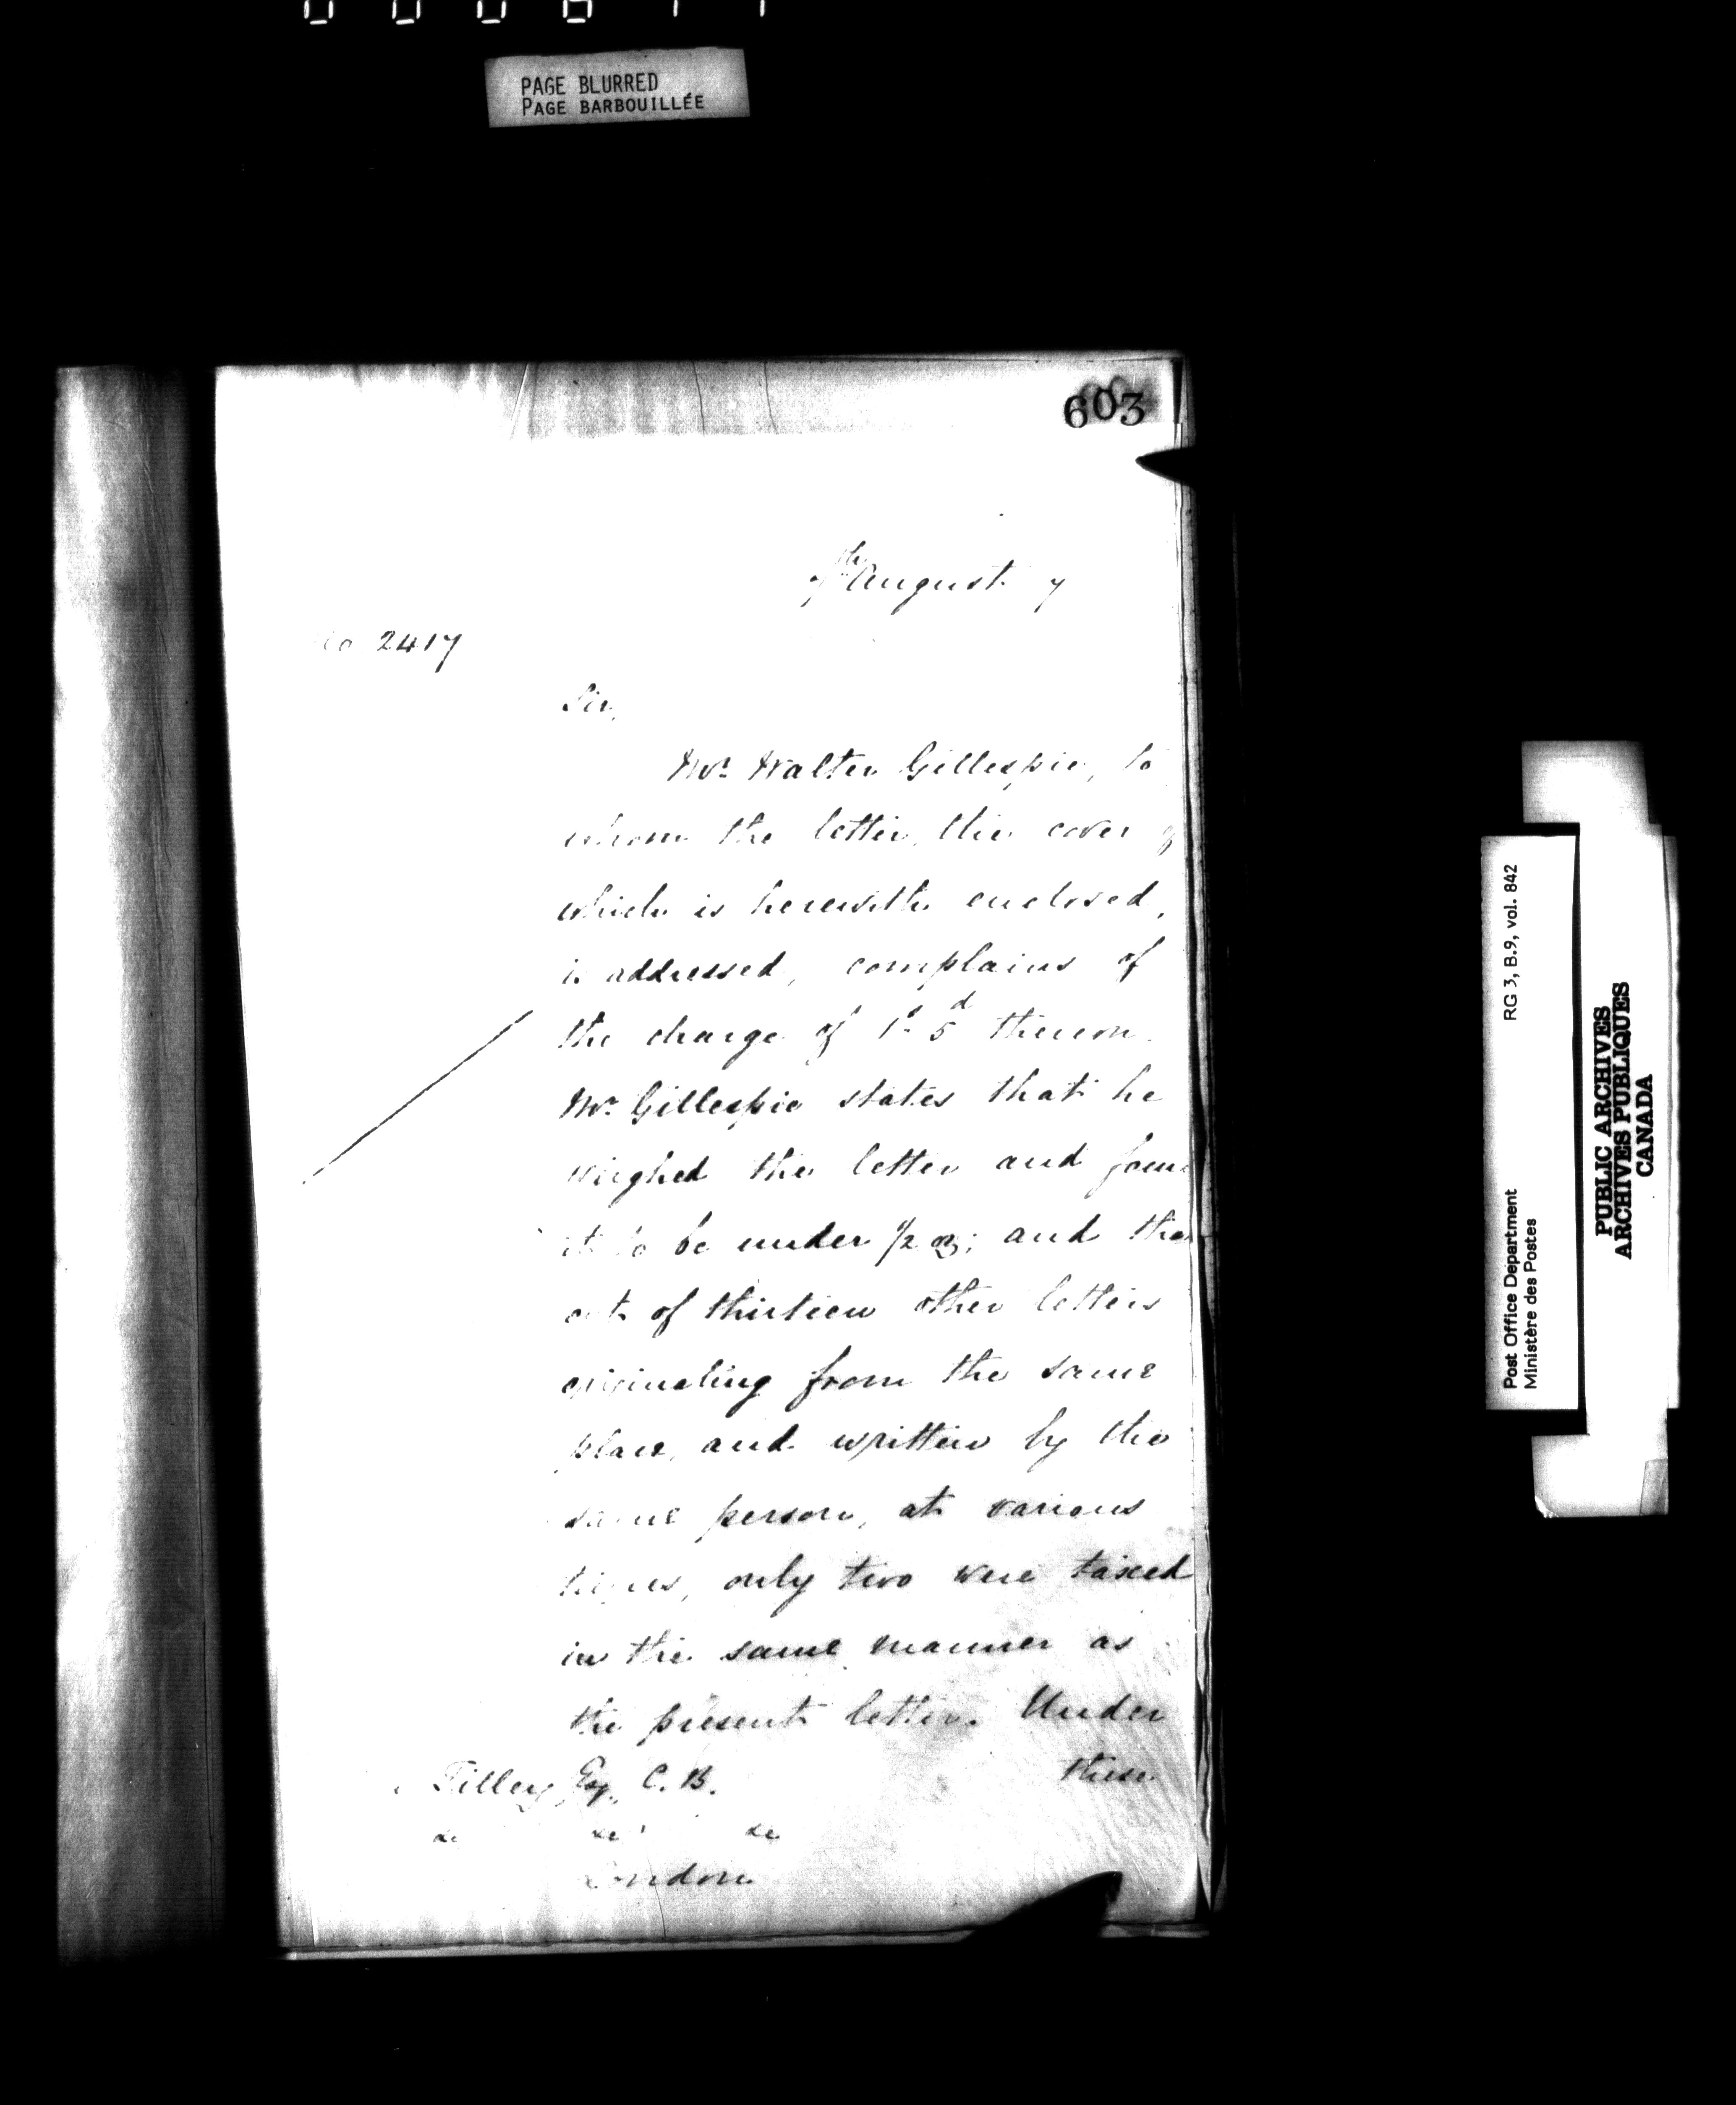 PAGE BLURRED
PAGE BARBOUILLÉE
603
7th August 7
No 2417
Sir,
Mr. Walter Gillespie, to
whom the letter, the cover of
which is herewith enclosed,
is addressed, complains of
the charge of 1s 5d thereon.
Mr. Gillespie states that he
weighed the letter and foun
it to be under 1/2 oz; and tha
out of thirteen other letters
originating from the same
place, and written by the
same person, at various
times, only two were taxed
in the same manner as
the present letter. Under
these
Tilley, Esq, C. B.
&c &c &c
London
RG 3, B.9, vol. 842
Post Office Department
Ministère des Postes
PUBLIC ARCHIVES
ARCHIVES PUBLIQUES
CANADA